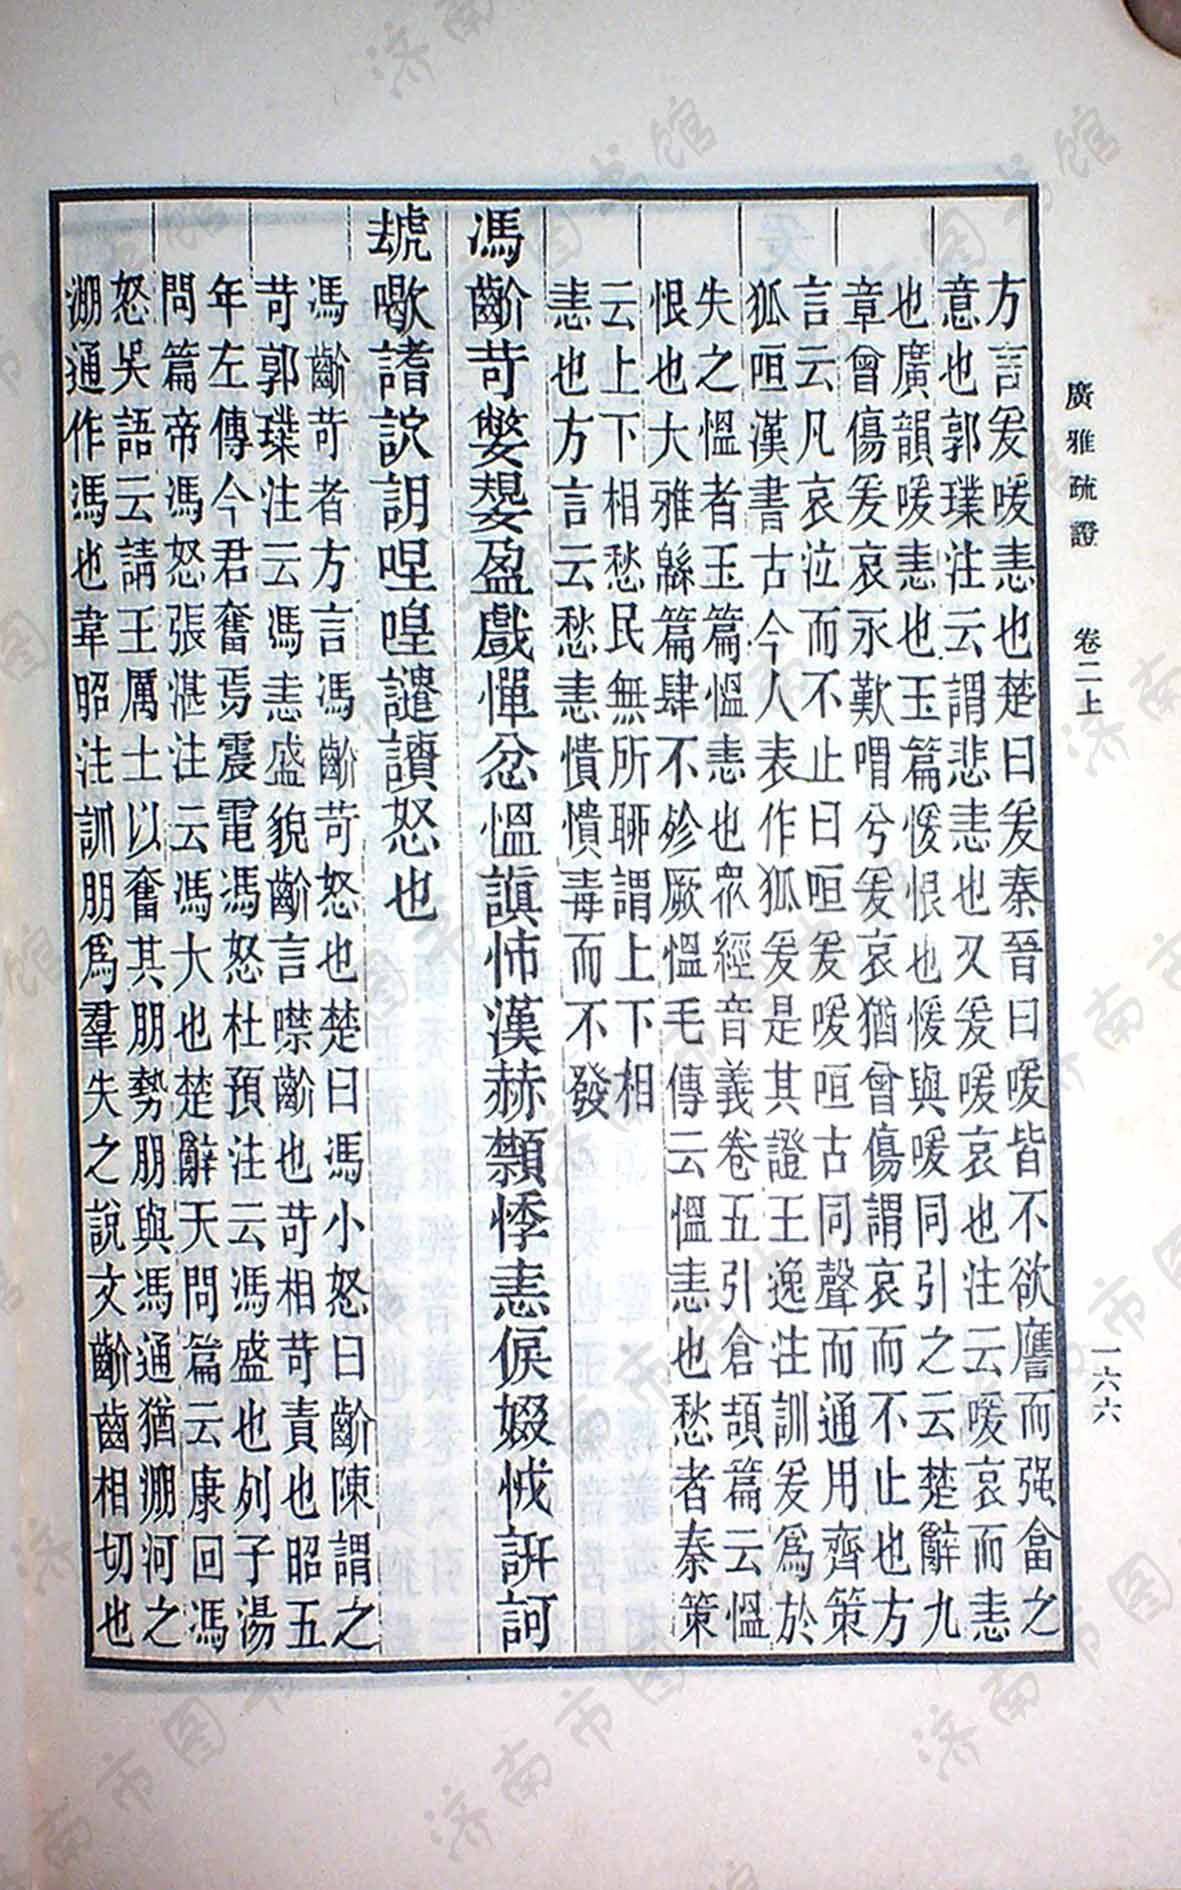 廣雅疏證　卷二上　一六六
方言爰喛恚也楚曰爰秦晉曰喛皆不欲譍而强畣之
意也郭璞注云謂悲恚也又爰喛哀也注云喛哀而恚
也廣韻喛恚也玉篇愋恨也愋與喛同引之云楚辭九
章曾傷爰哀永歎喟兮爰哀猶曾傷謂哀而不止也方
言云凡哀泣而不止曰咺爰喛咺古同聲而通用齊策
狐咺漢書古今人表作狐爰是其證王逸注訓爰爲於
失之慍者玉篇慍恚也眾經音義卷五引倉頡篇云慍
恨也大雅緜篇肆不殄厥慍毛傳云慍恚也愁者秦策
云上下相愁民無所聊謂上下相
恚也方言云愁恚憒憒毒而不發
馮齘苛憋嫢盈戲憚忿慍謓怖漢赫䫴悸恚㑨娺忮訮訶
虩嘋䜆訧詷哩喤譴讀怒也
馮齘苛者方言馮齘苛怒也楚曰馮小怒曰齘陳謂之
苛郭璞注云馮恚盛貌齘言噤齘也苛相苛責也昭五
年左傳今君奮焉震電馮怒杜預注云馮盛也列子湯
問篇帝馮怒張湛注云馮大也楚辭天問篇云康回馮
怒吳語云請王厲士以奮其朋勢朋與馮通猶淜河之
淜通作馮也韋昭注訓朋爲羣失之說文齘齒相切也